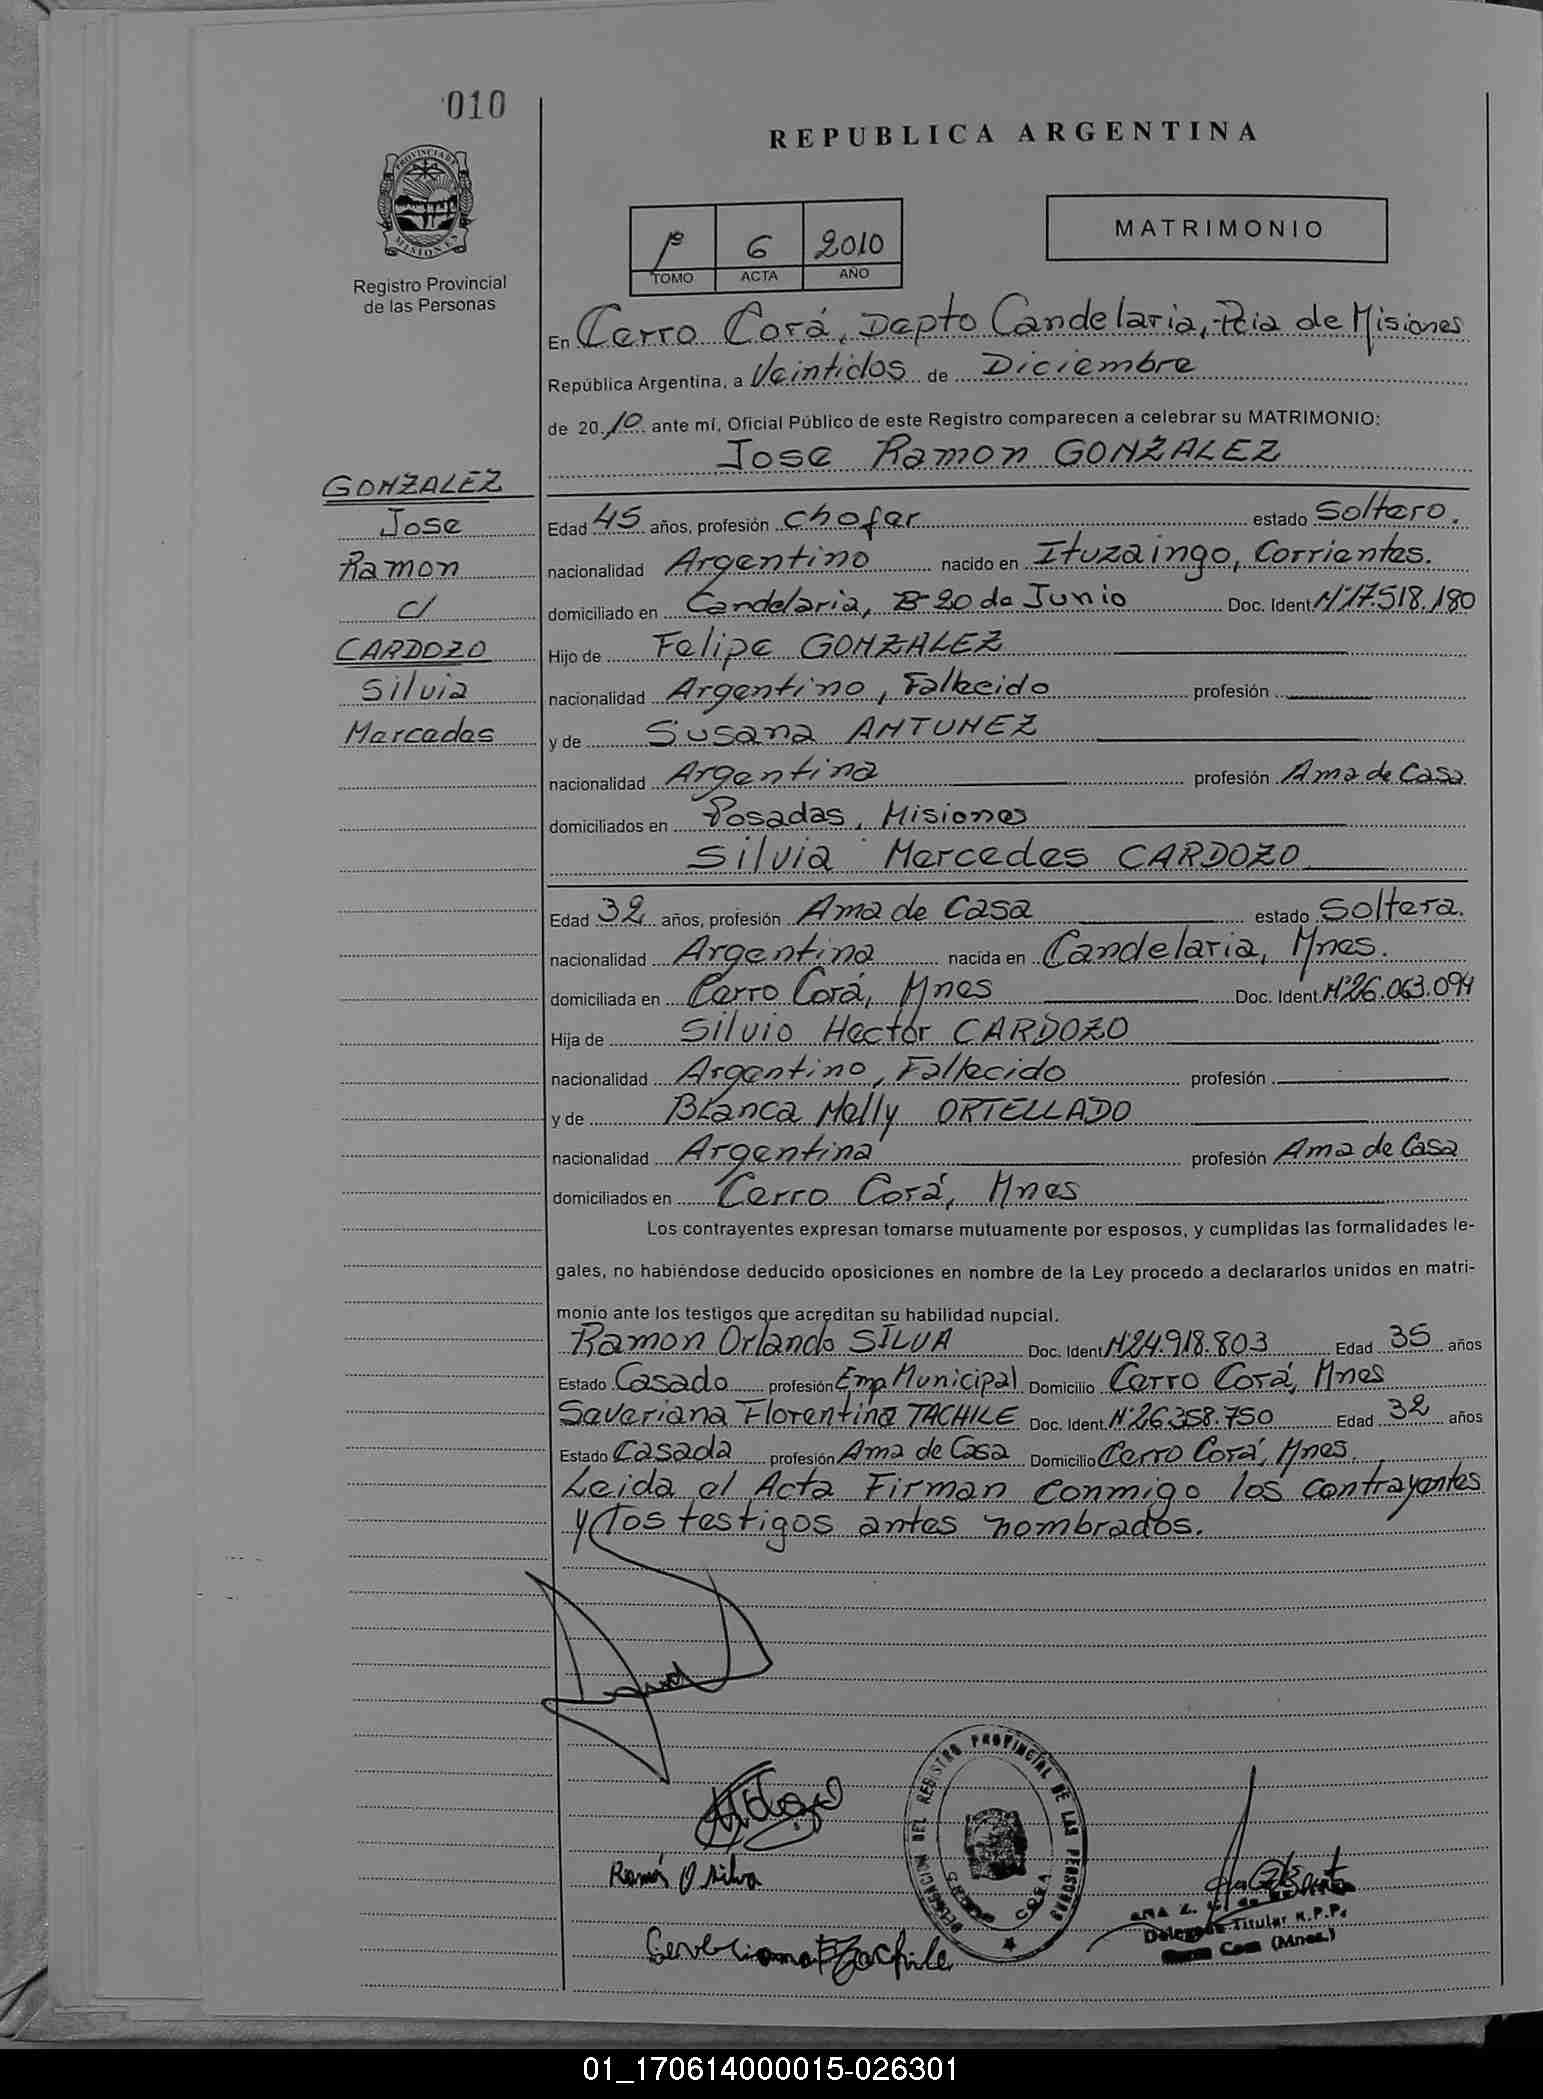 010
REPUBLICA ARGENTINA
PROVINCIA DE
MISIONES
Registro Provincial
de las Personas
1º 6 2010
TOMO ACTA AÑO
MATRIMONIO
En Cerro Corá, Depto Candelaria, Pcia de Misiones
República Argentina, a Veintidos de Diciembre
de 2010 ante mí, Oficial Público de este Registro comparecen a celebrar su MATRIMONIO:
Jose Ramon GONZALEZ
GONZALEZ
Jose
Ramon
c/
CARDOZO
Silvia
Mercedes
Edad 45 años, profesión chofer estado Soltero.
nacionalidad Argentino nacido en Ituzaingo, Corrientes.
domiciliado en Candelaria, Bº 20 de Junio Doc. Ident. Nº17.518.180
Hijo de Felipe GONZALEZ
nacionalidad Argentino, Fallecido profesión
y de Susana ANTUNEZ
nacionalidad Argentina profesión Ama de Casa
domiciliados en Posadas, Misiones
Silvia Mercedes CARDOZO
Edad 32 años, profesión Ama de Casa estado Soltera.
nacionalidad Argentina nacida en Candelaria, Mnes.
domiciliada en Cerro Corá, Mnes Doc. Ident. Nº26.063.094
Hija de Silvio Hector CARDOZO
nacionalidad Argentino, Fallecido profesión
y de Blanca Nelly ORTELLADO
nacionalidad Argentina profesión Ama de Casa
domiciliados en Cerro Corá, Mnes
Los contrayentes expresan tomarse mutuamente por esposos, y cumplidas las formalidades le-
gales, no habiéndose deducido oposiciones en nombre de la Ley procedo a declararlos unidos en matri-
monio ante los testigos que acreditan su habilidad nupcial.
Ramon Orlando SILVA Doc. Ident. Nº24.918.803 Edad 35 años
Estado Casado profesión Emp Municipal Domicilio Cerro Corá, Mnes
Saveriana Florentina TACHILE Doc. Ident. Nº26.358.750 Edad 32 años
Estado Casada profesión Ama de Casa Domicilio Cerro Corá, Mnes.
Leida el Acta Firman conmigo los contrayentes
y los testigos antes nombrados.
DELEGACION DEL REGISTRO PROVINCIAL DE LAS PERSONAS
CERRO CORA
Ramón O Silva
ANA Z.
Delegada Titular R.P.P.
Cerro Cora (Mnes.)
01_170614000015-026301